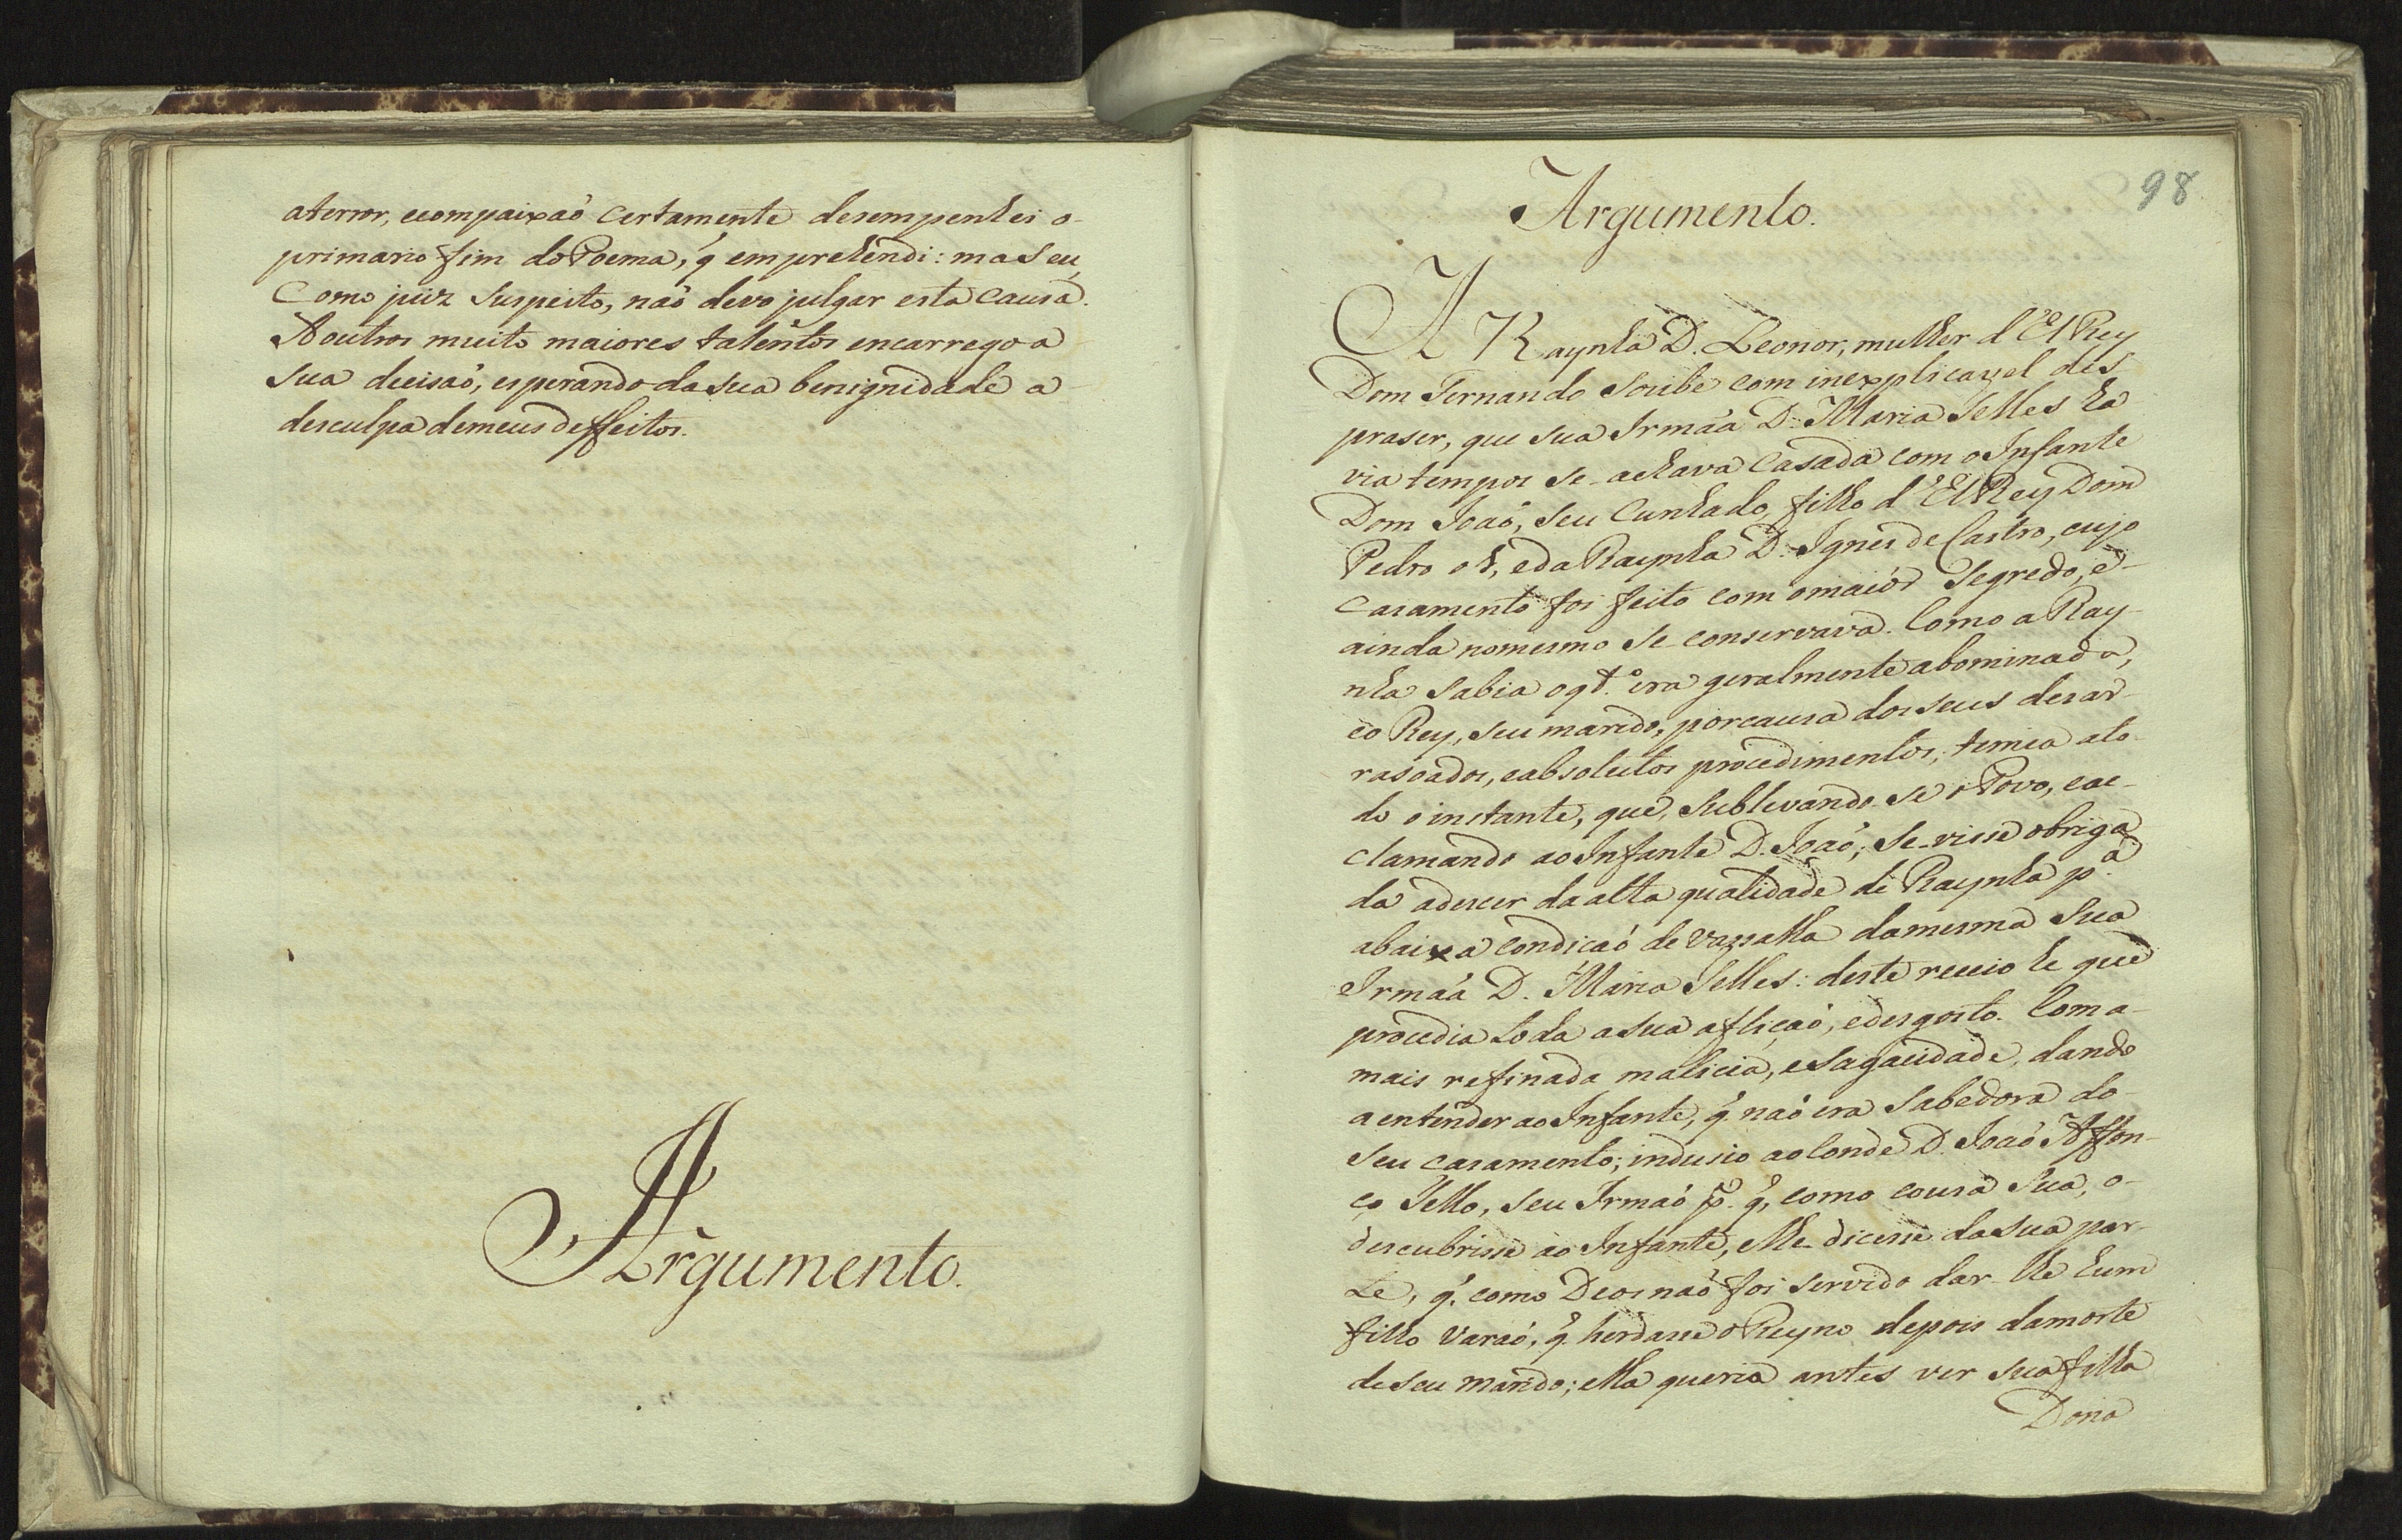 aterror, ecompaixaõ certamente desempenhei o-
primario fim do Poema, q̃ emprehendi: mas eu,
Como juiz suspeito, naõ devo julgar esta causa.
A outros muito maiores talentos encarrego a
sua decisaõ, esperando da sua benignidade a
desculpa demeus deffeitos.
Argumento.
98
Argumento.
A Raynha D. Leonor, mulher d'El Rey
Dom Fernando soube com inexplicavel des-
praser, que sua Irmãa D. Maria Telles ha
via tempos se-achava Casada com o Infante
Dom Joaõ, seu Cunhado, filho d'El Rey Dom
Pedro o I, eda Raynha D. Ignes de Castro, cujo
casamento foi feito com omaiór segredo, e-
ainda nomesmo se-conservava. Como a Ray-
nha sabia oqt.º era geralmente abominada,
eo Rey, seu marido, porcausa dos seus desar-
rasoados, eabsolutos procedimentos, temia ato-
do o instante, que, sublevando-se o Povo, eac-
clamando ao Infante D. Joaõ, se-visse obriga
da adescer da alta qualidade de Raynha p.ª
abaixa condicaõ de vassalla damesma sua
Irmãa D. Maria Telles: deste receio he que
procedia toda a sua afliçaõ, edesgosto. Com a-
mais refinada malicia, esagacidade, dando
a entender ao Infante, q̃ naõ era sabedora do-
seu casamento; indusio ao Conde D. Joaõ Affon-
ço Tello, seu Irmaõ p.ª q̃, como cousa sua, o-
descubrisse ao Infante, elhe dicesse da sua par-
te, q̃, como Deos naõ foi servido dar-lhe hum
filho Varaõ, q̃ herdasse o Reyno depois damorte
de seu marido; ella queria antes ver sua filha
Dona